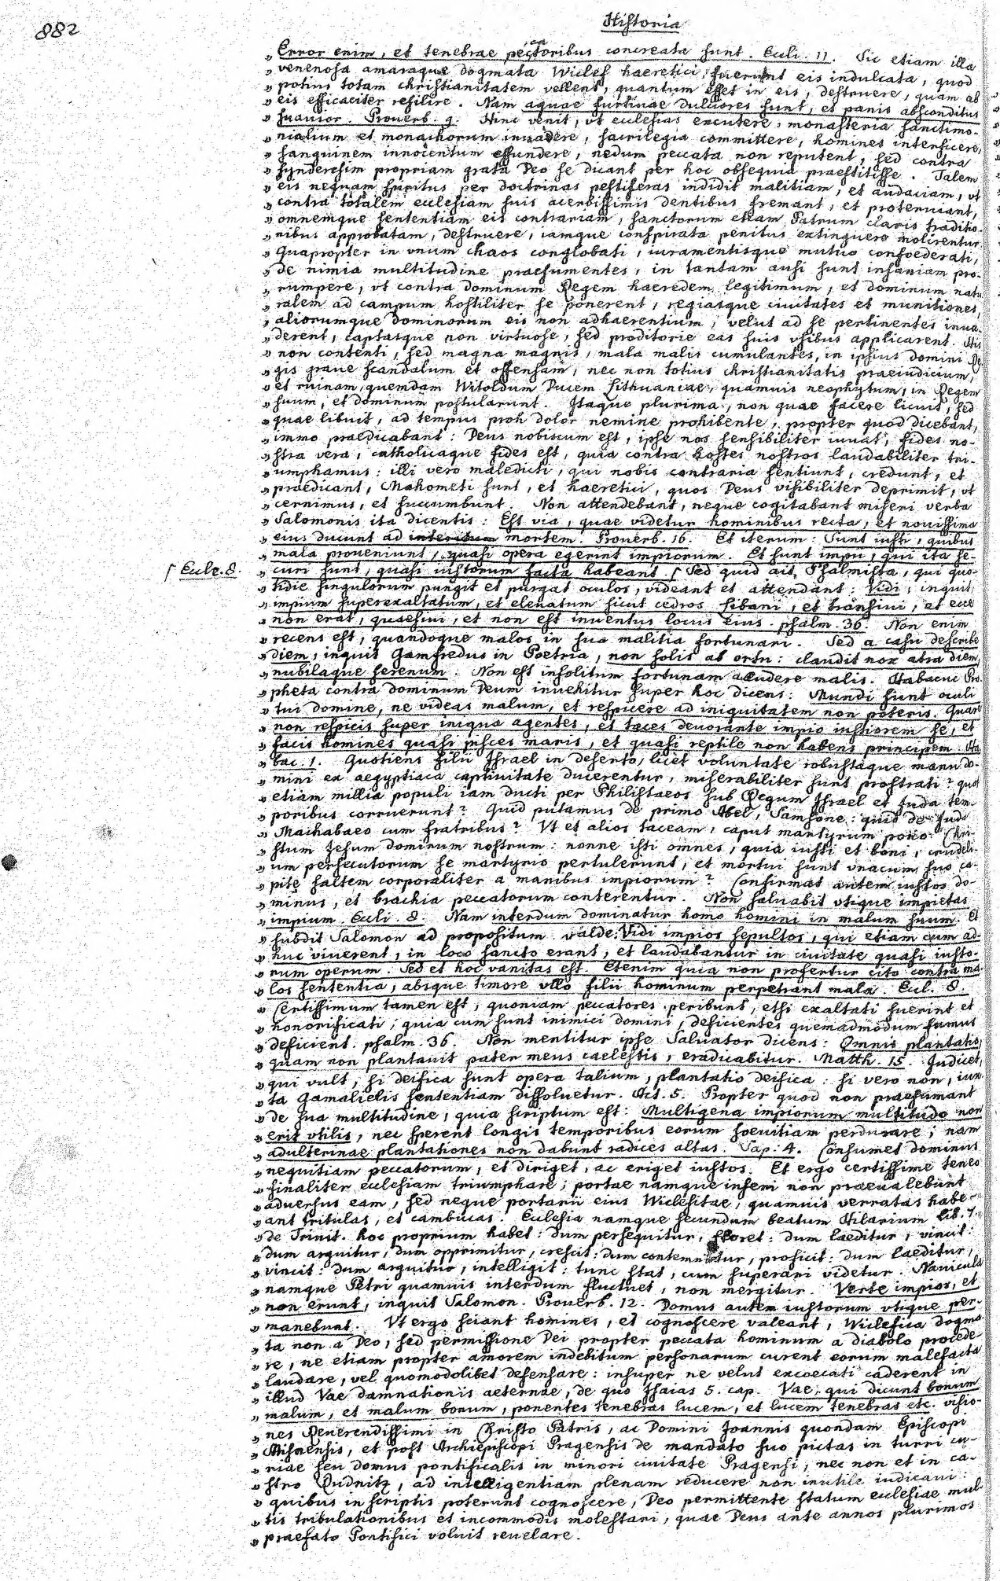 882
Historia
„ Error enim, et tenebrae peccatoribus concreata sunt. Eccli. 11. Sic etiam illa
„ venenosa amaraque dogmata Wiclef haeretici, fuerunt eis indulcata, quod
„ potius totam christianitatem vellent, quantum esset in eis, destruere, quam ab
„ eis efficaciter resilire. Nam aquae furtivae dulciores sunt, et panis absconditus
„ suavior. Proverb. 9. Hinc venit, ut ecclesias excutere, monasteria sanctimo-
„ nialium et monachorum invadere, sacrilegia committere, homines interficere,
„ sanguinem innocentum effundere, nedum peccata non reputent, sed contra
„ synderesim propriam grata Deo se dicant per hoc obsequia praestitisse. Talem
„ eis nequam spiritus per doctrinas pestiferas indidit malitiam, et audaciam, ut
„ contra totalem ecclesiam suis acerbissimis dentibus fremant, et proterviant,
„ omnemque sententiam eis contrariam, sanctorum etiam Patrum claris traditio-
„ nibus approbatam, destruere, iamque conspirata penitus extinguere molirentur.
„ Quapropter in unum chaos conglobati, iuramentisque mutuo confoederati,
„ de nimia multitudine praesumentes, in tantam ausi sunt insaniam pro-
„ rumpere, vt contra dominum Regem haeredem legitimum, et dominum natu-
„ ralem ad campum hostiliter se ponerent, regiasque civitates et munitiones,
„ aliorumque dominorum eis non adhaerentium, velut ad se pertinentes inva-
„ derent, captasque non virtuose, sed proditorie eas suis vsibus applicarent. His
„ non contenti, sed magna magnis, mala malis cumulantes, in ipsius domini Re-
„ gis grave scandalum et offensam, nec non totius christianitatis praeiudicium,
„ et ruinam, quemdam Witoldum Ducem Lithuaniae, quamuis neophytum, in Regem
„ suum, et dominum postularunt. Itaque plurima, non quae facere licuit, sed
„ quae libuit, ad tempus proh dolor nemine prohibente, propter quod dicebant,
„ immo praedicabant: Deus nobiscum est, ipse nos sensibiliter iuuat, fides no-
„ stra vera, catholicaque fides est, quia contra hostes nostros laudabiliter tri-
„ umphamus: illi vero maledicti, qui nobis contraria sentiunt, credunt, et
„ praedicant, Mahometi sunt, et haeretici, quos Deus visibiliter deprimit, vt
„ cernimus, et succumbunt. Non attendebant, neque cogitabant miseri verba
„ Salomonis ita dicentis: Est via, quae videtur hominibus recta, et nouissima
„ eius ducunt ad mortem. Proverb. 16. Et iterum: Sunt iusti, quibus
„ mala proveniunt, quasi opera egerint impiorum. Et sunt impii, qui ita se-
ſ Eccle. 8.
„ curi sunt, quasi iustorum facta habeant ſ Sed quid ait Psalmista, qui quo-
„ tidie singulorum pungit et purgat oculos, videant et attendant: Vidi, inquit,
„ impium superexaltatum, et elevatum sicut cedros Libani, et transivi, et ecce
„ non erat, quaesivi, et non est inventus locus eius. psalm. 36. Non enim
„ recens est, quandoque malos in sua malitia fortunari. Sed a casu describe
„ diem, inquit Gamfredus in Poetria, non solis ab ortu: claudit nox atra diem,
„ nubilaque serenum. Non est insolitum fortunam alludere malis. Habacuc Pro-
„ pheta contra dominum Deum invehitur super hoc dicens: Mundi sunt oculi
„ tui domine, ne videas malum, et respicere ad iniquitatem non poteris. Quare
„ non respicis super iniqua agentes, et taces devorante impio iustiorem se, et
„ facis homines quasi pisces maris, et quasi reptile non habens principem. Ha-
„ bac. 1. Quotiens filii Israel in deserto, licet voluntate robustaque manu do-
„ mini ex aegyptiaca captivitate ducerentur, miserabiliter sunt prostrati? quot
„ etiam millia populi iam ducti per Philistaeos sub Regum Israel et Juda tem-
„ poribus corruerunt? Quid putamus de primo Abel, Samsone: quid de Juda
„ Machabaeo cum fratribus? Vt et alios taceam, caput martyrum pono Chri-
„ stum Jesum dominum nostrum: nonne isti omnes, quia iusti et boni, crudeli-
„ um persecutorum se martyrio pertulerunt, et mortui sunt vnacum suo ca-
„ pite saltem corporaliter a manibus impiorum? Confirmat autem iustos do-
„ minus, et brachia peccatorum conterentur. Non salvabit vtique impietas
„ impium. Eccli. 8. Nam interdum dominatur homo homini in malum suum. Et
„ subdit Salomon ad propositum valde: Vidi impios sepultos, qui etiam cum ad-
„ huc viverent, in loco sancto erant, et laudabantur in civitate quasi iusto-
„ rum operum. Sed et hoc vanitas est. Etenim quia non profertur cito contra ma-
„ los sententia, absque timore vllo filii hominum perpetrant mala. Eccl. 8.
„ Certissimum tamen est, quoniam peccatores peribunt, etsi exaltati fuerint et
„ honorificati, quia cum sunt inimici domini, deficientes quemadmodum fumus
„ deficient. psalm. 36. Non mentitur ipse Salvator dicens: Omnis plantatio,
„ quam non plantavit pater meus caelestis, eradicabitur. Matth. 15. Judicet,
„ qui vult, si deifica sunt opera talium, plantatio deifica: si vero non, iux-
„ ta Gamalielis sententiam dissoluetur. Act. 5. Propter quod non praesumant
„ de sua multitudine, quia scriptum est: Multigena impiorum multitudo non
„ erit vtilis, nec sperent longis temporibus eorum soevitiam perdurare; nam
„ adulterinae plantationes non dabunt radices altas. Sap. 4. Consumet dominus
„ nequitiam peccatorum, et diriget, ac eriget iustos. Et ergo certissime teneo
„ finaliter ecclesiam triumphare; portae namque inferi non praevalebunt
„ adversus eam, sed neque portarii eius Wiclefitae, quamuis verratas habe-
„ ant fritulas, et cambucas. Ecclesia namque secundum beatum Hilarium lib. 7.
„ de Trinit. hoc proprium habet: dum persequitur, floret: dum laeditur, vincit:
„ dum arguitur, dum opprimitur, crescit: dum contemnitur, proficit: dum laeditur,
„ vincit: dum arguitur, intelligit: tunc stat, cum superari videtur. Navicula
„ namque Petri quamuis interdum fluctuet, non mergitur. Verte impios, et
„ non erunt, inquit Salomon. Proverb. 12. Domus autem iustorum vtique per-
„ manebunt. Vt ergo sciant homines, et cognoscere valeant, Wiclefica dogma-
„ ta non a Deo, sed permissione Dei propter peccata hominum a diabolo procede-
„ re, ne etiam propter amorem indebitum personarum curent eorum malefacta
„ laudare, vel quomodolibet defensare: insuper ne velut excoecati caderent in
„ illud Vae damnationis aeternae, de quo Isaias 5. cap. Vae, qui dicunt bonum
„ malum, et malum bonum, ponentes tenebras lucem, et lucem tenebras etc. visio-
„ nes Reverendissimi in Christo Patris, ac Domini Joannis quondam Episcopi
„ Misnensis, et post Archiepiscopi Pragensis de mandato suo pictas in turri cu-
„ riae seu domus pontificalis in minori civitate Pragensi, nec non et in ca-
„ stro Rudnitz, ad intelligentiam plenam reducere non inutile iudicavi:
„ quibus in scriptis poterunt cognoscere, Deo permittente statum ecclesiae mul-
„ tis tribulationibus et incommodis molestari, quae Deus ante annos plurimos
„ praefato Pontifici voluit revelare.